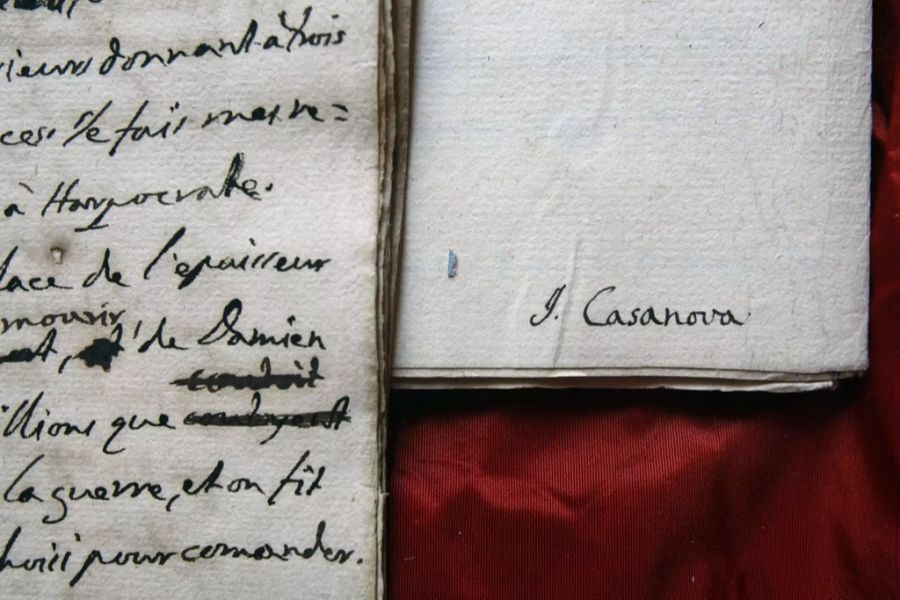 rieurs donnant à trois
ces: Je fais mes re=
à Harpocrate.
lace de l'epaisseur
mourir,
de Damien
conduit
illions que
la guerre, et on fit
hoisi pour comander.
J. Casanova